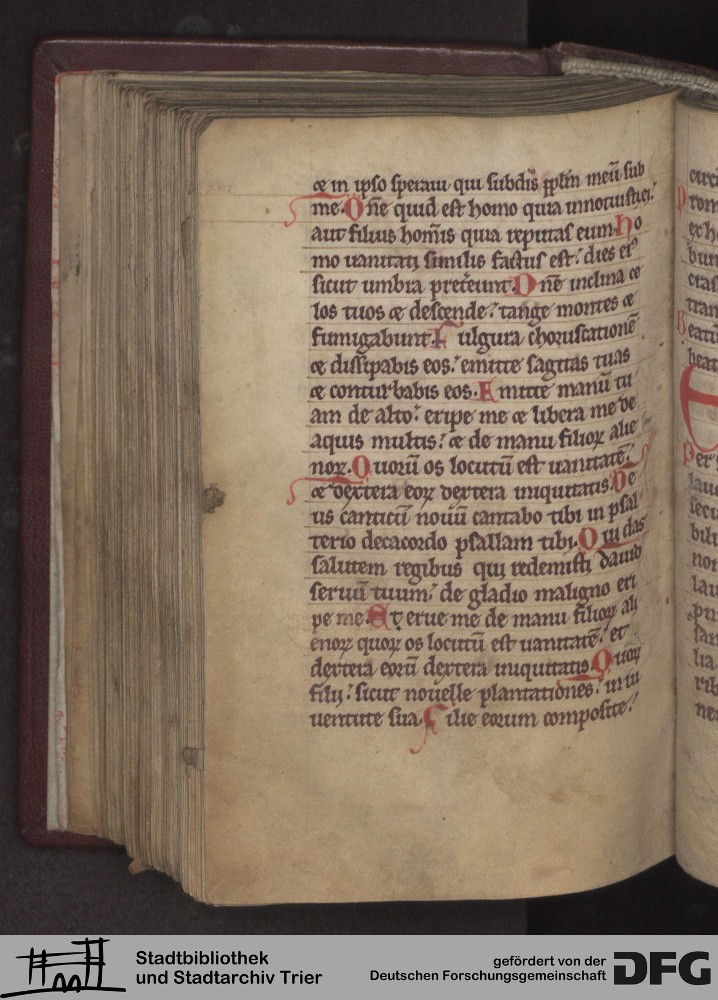 ⁊ in ipso speraui qui subdis pplm meū sub
me. Dñe quid est homo quia innotuisti ei?
aut filius homīs quia reputas eum. Ho
mo uanitati similis factus est: dies eiꝰ
sicut umbra pretereunt. Dñe inclina ce
los tuos ⁊ descende: tange montes ⁊
fumigabunt. Fulgura choruscationē
⁊ dissipabis eos: emitte sagitas tuas
⁊ conturbabis eos. Emitte manū tu
am de alto: eripe me ⁊ libera me de
aquis multis: ⁊ de manu filioꝝ alie
noꝝ. Quorū os locutū est uanitatē:
⁊ dextera eoꝝ dextera iniquitatis. De
us canticū nouū cantabo tibi in psal
terio decacordo psallam tibi. Qui das
salutem regibus qui redemisti dauid
seruū tuum: de gladio maligno eri
pe me. Et erue me de manu filioꝝ ali
enoꝝ quoꝝ os locutū est uanitatē: et
dextera eorū dextera iniquitatis. Quoꝝ
filij: sicut nouelle plantationes: in iu
uentute sua. Filie eorum composite:
circū
Prom
ex h
bun
etas
tran
Beatū
beat
E
Per
lau
secu
bili
non
lau
lia
rib
ne
Stadtbibliothek
und Stadtarchiv Trier
gefördert von der
Deutschen Forschungsgemeinschaft
DFG